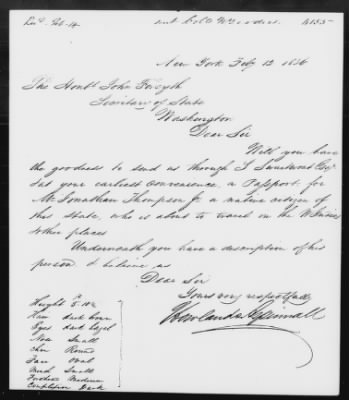 Recd. Feb. 14
sent Col.
New York Feby 12 1836
The Honbl. John Forsyth
Secretary of State
Washington
Dear Sir
Will you have
the goodness to send us through S Swartwout Esqr
(at your earliest convenience, a Passport for
Mr Jonathan Thompson Jr. a native citizen of
this State, who is about to travel on the W Indies
& other places
Underneath you have a description of his
person, & believe us
Dear Sir
Yours very respectfully
Howland & Aspinwall
Height 5. 10½
Hair dark brown
Eyes dark hazel
Nose Small
chin Round
Face Oval
Mouth Small
Forehead Medium
Complexion Dark